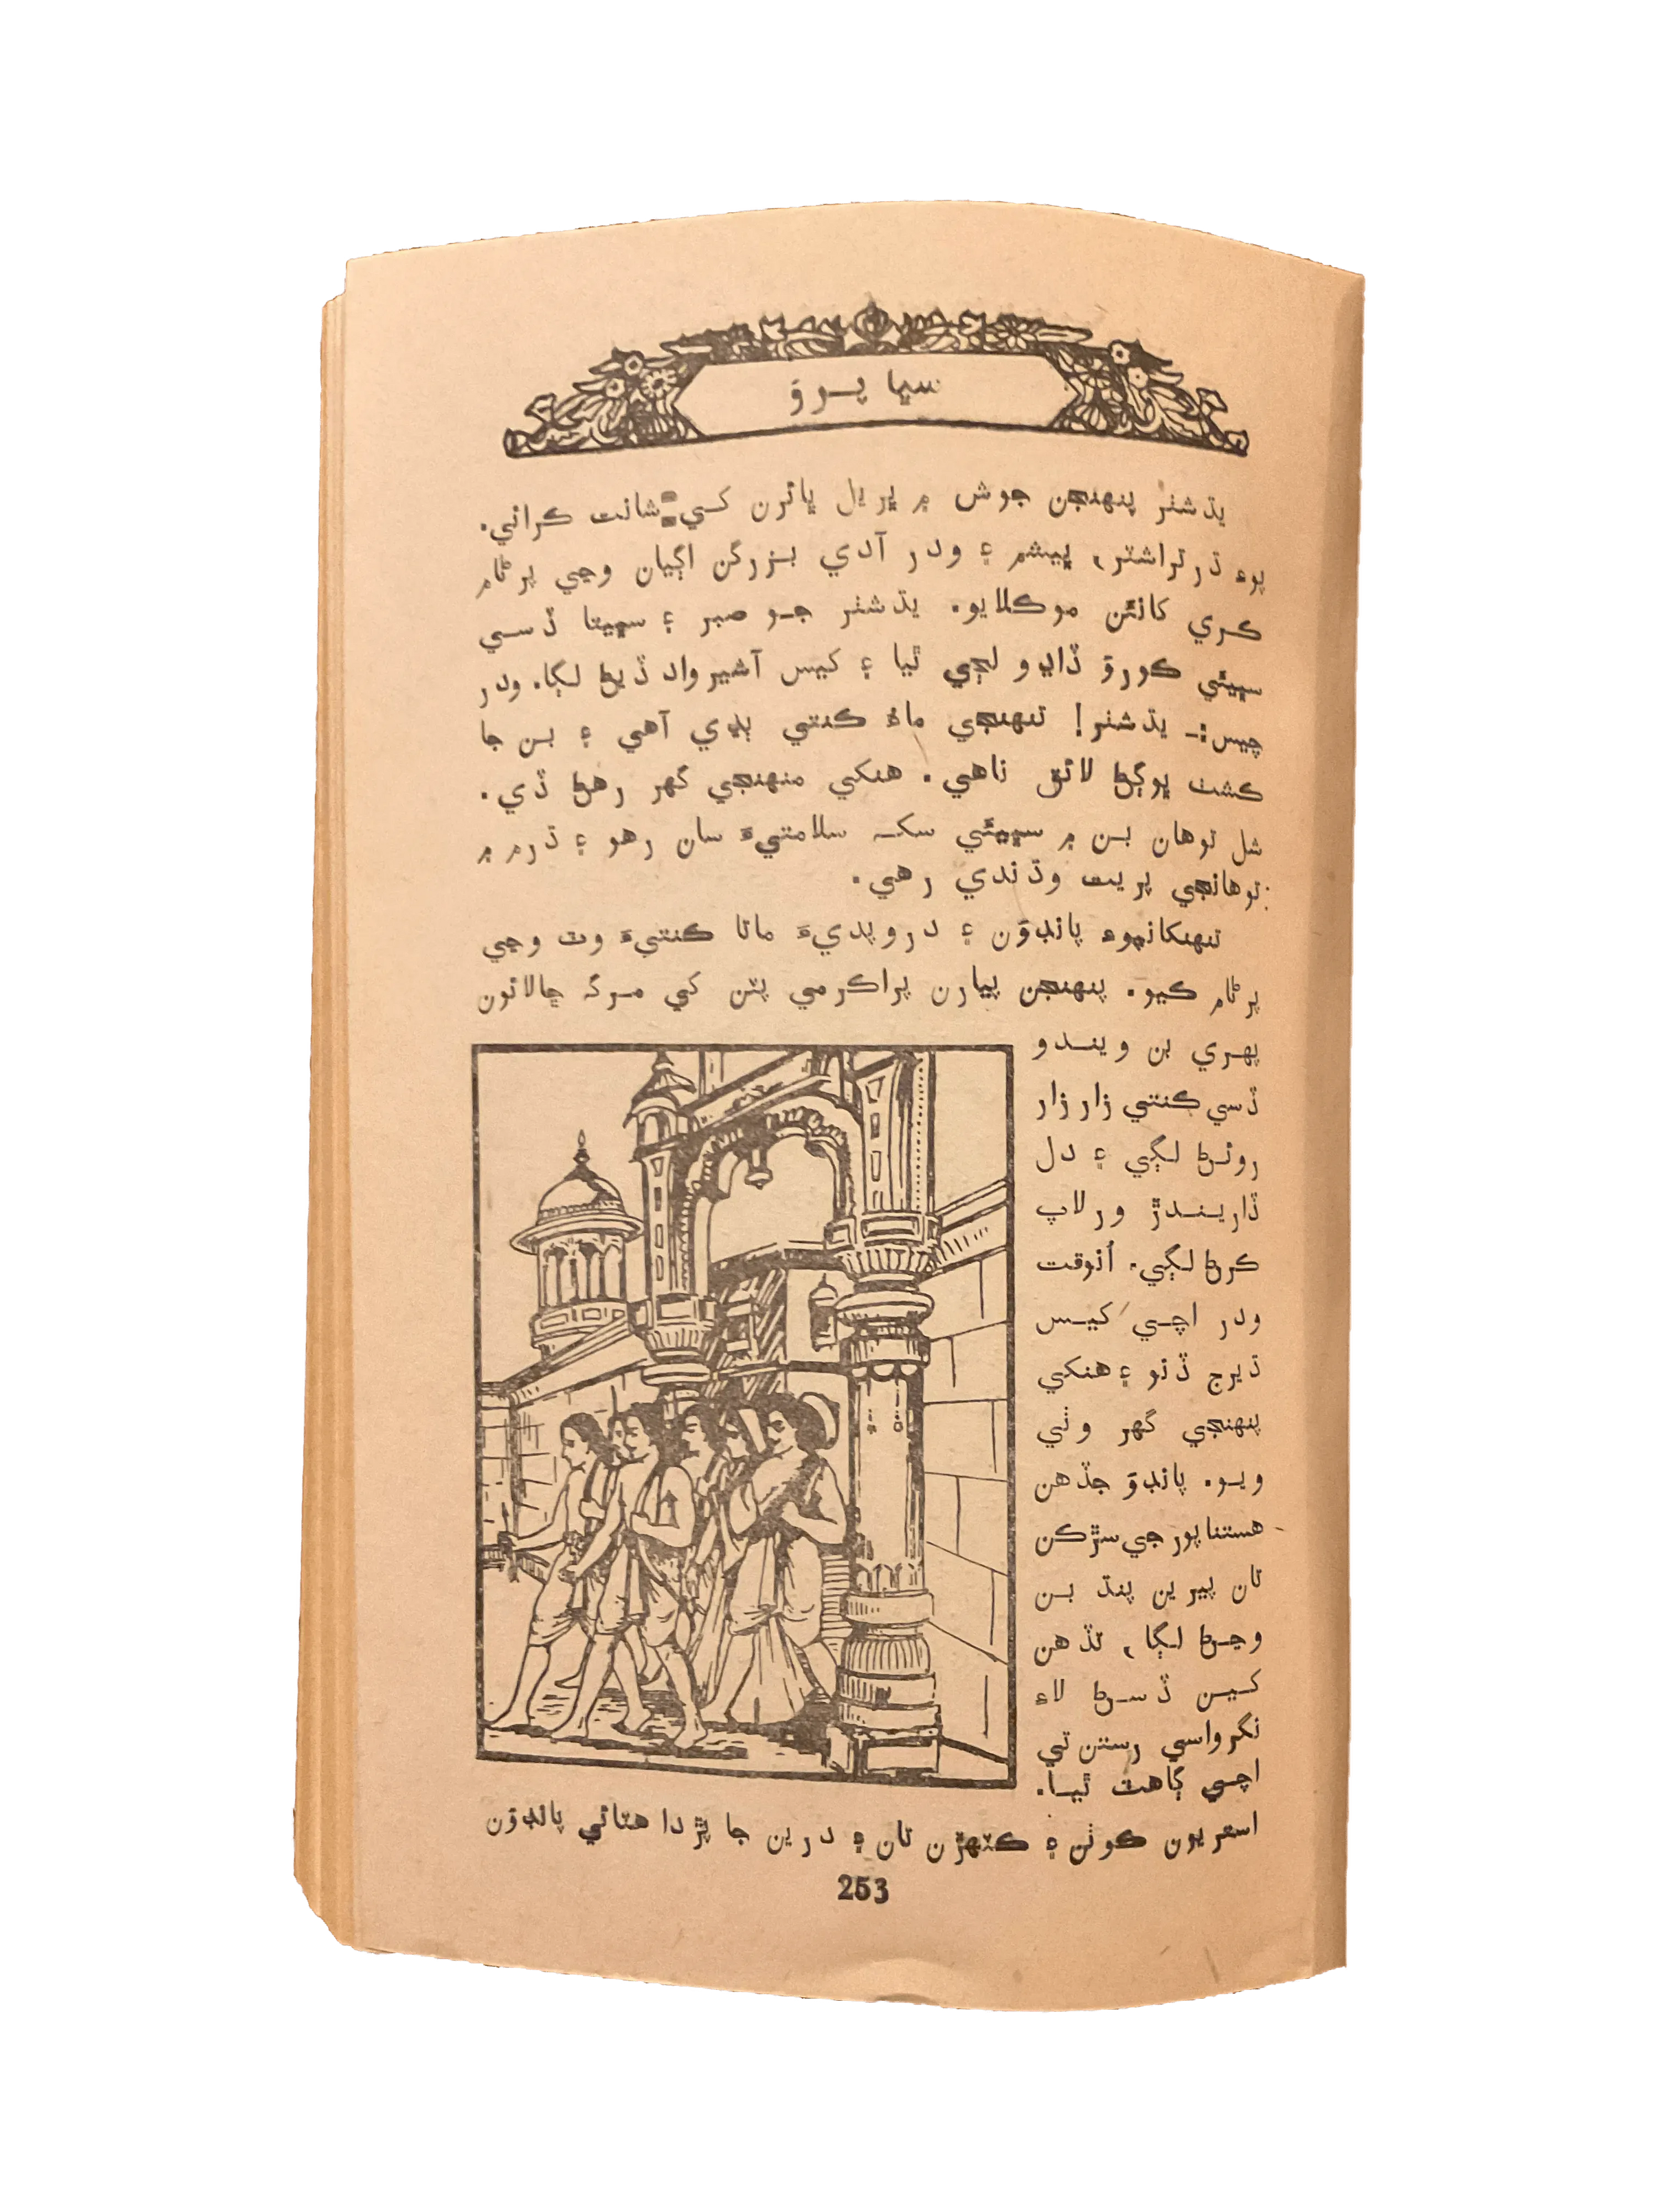 سڀا پرؤ
يڌشٽر پنهنجن جوش ۾ ڀريل ڀائرن کي شانت ڪرائي.
پوءِ ڌرتراشٽر، ڀيشم ۽ ودر آدي بزرگن اڳيان وڃي پرڻام
ڪري کائئن موڪلايو. يڌشٽر جو صبر ۽ سڀيتا ڏسي
سڀيئي ڪورؤ ڏاڍو لڄي ٿيا ۽ کيس آشيرواد ڏيڻ لڳا. ودر
چيس:- يڌشٽر! تنهنجي ماءُ ڪنتي ٻڍي آهي ۽ بن جا
ڪشٽ ڀوڳڻ لائق ناهي. هنکي منهنجي گهر رهڻ ڏي.
شل توهان بن ۾ سڀيئي سک سلامتيءَ سان رهو ۽ ڌرم ۾
توهانجي پريت وڌندي رهي.
تنهنکانپوءِ پانڊؤن ۽ دروپديءَ ماتا ڪنتيءَ وٽ وڃي
پرڻام ڪيو. پنهنجن پيارن پراڪرمي پٽن کي مرگ ڇالائون
پهري بن ويندو
ڏسي ڪنتي زار زار
روئڻ لڳي ۽ دل
ڏاريندڙ ورلاپ
ڪرڻ لڳي. اُنوقت
ودر اچي کيس
ڌيرج ڏنو ۽ هنکي
پنهنجي گهر وٺي
ويو. پانڊؤ جڏهن
هستناپور جي سڙڪن
تان پيرين پنڌ بن
وڃڻ لڳا، تڏهن
کين ڏسڻ لاءِ
نگرواسي رستن تي
اچي گاهٽ ٿيا.
استريون ڪوٺن ۽ ڪٽهڙن تان ۽ درين جا پڙدا هٽائي پانڊؤن
253